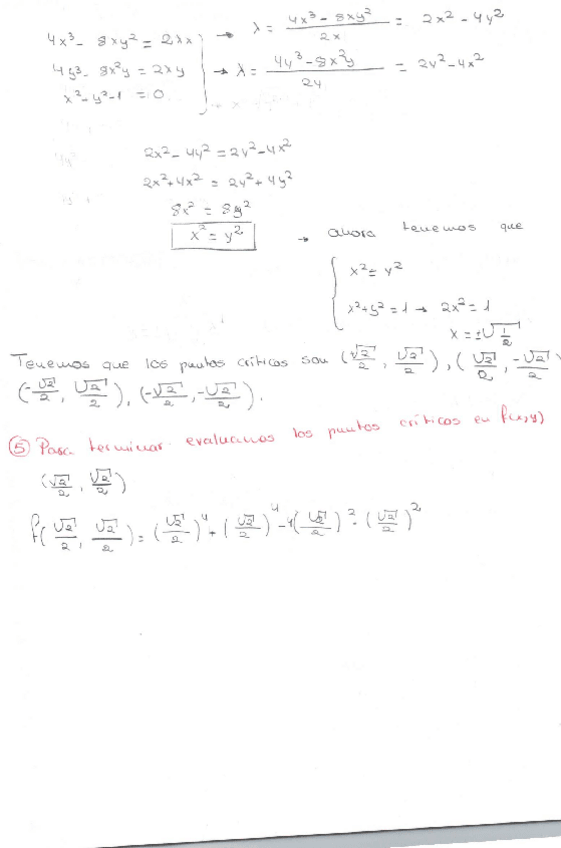 4x³ - 8xy² = 2λx → λ = (4x³ - 8xy²)/2x = 2x² - 4y²
4y³ - 8x²y = 2λy → λ = (4y³ - 8x²y)/2y = 2y² - 4x²
x² - y² - 1 = 0
2x² - 4y² = 2y² - 4x²
2x² + 4x² = 2y² + 4y²
8x² = 8y²
x² = y² → ahora tenemos que
x² = y²
x² + y² = 1 → 2x² = 1
x = ±√(1/2)
Tenemos que los puntos críticos son (√2/2, √2/2), (√2/2, -√2/2)
(-√2/2, √2/2), (-√2/2, -√2/2).
⑤ Para terminar evaluamos los puntos críticos en f(x,y)
(√2/2, √2/2)
f(√2/2, √2/2) = (√2/2)⁴ + (√2/2)⁴ - 4(√2/2)² · (√2/2)²